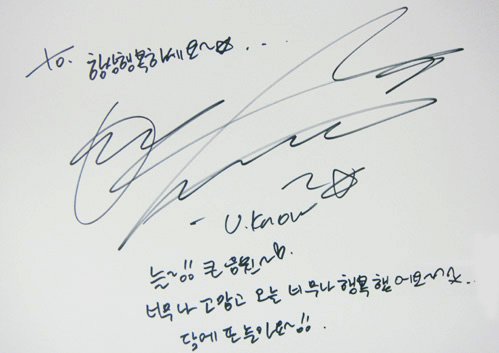 To. 항상행복하세요~☆...
~☆
- U.Know
늘~!! 큰 응원~b.
너무나 고맙고 오늘 너무나 행복했어요~☆.
담에 또 놀아요~!!.